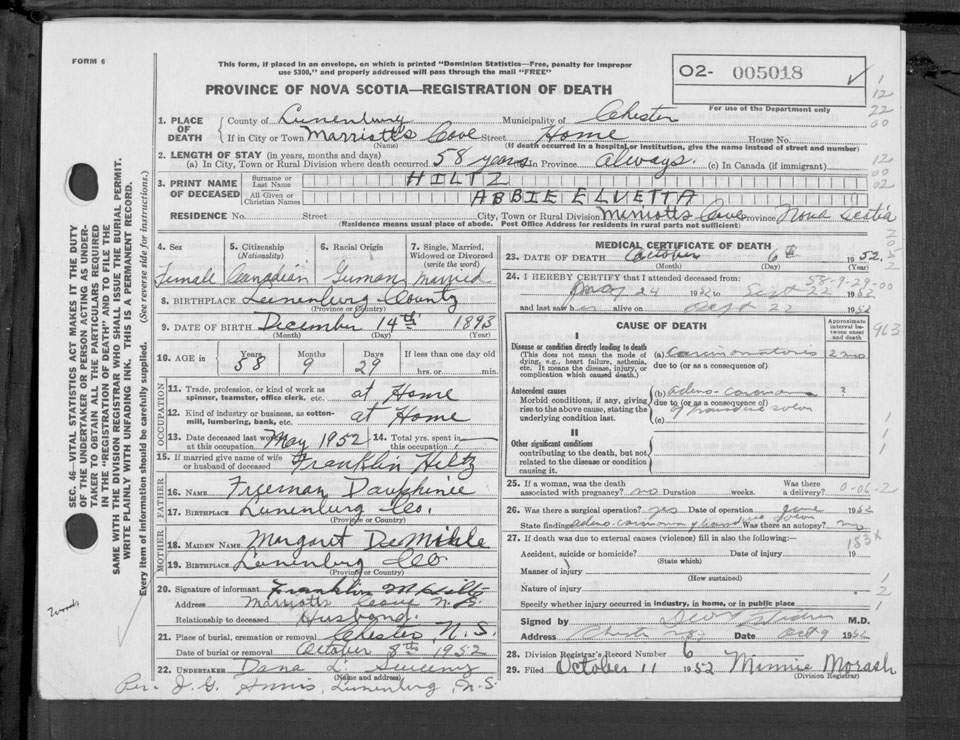 FORM 6
This form, if placed in an envelope, on which is printed "Dominion Statistics—Free, penalty for improper
use $300," and properly addressed will pass through the mail "FREE"
O2- 005018
PROVINCE OF NOVA SCOTIA—REGISTRATION OF DEATH
For use of the Department only
1. PLACE OF DEATH
County of Lunenburg Municipality of Chester
If in City or Town Marriott's Cove Street Home House No.
(Name) (If death occurred in a hospital or institution, give the name instead of street and number)
2. LENGTH OF STAY (in years, months and days)
(a) In City, Town or Rural Division where death occurred. 58 years In Province always. (c) In Canada (if immigrant)
3. PRINT NAME OF DECEASED
Surname or Last Name HILTZ
All Given or Christian Names ABBIE ELVETTA
RESIDENCE No. Street City, Town or Rural Division Marriotts Cove Province Nova Scotia
(Residence means usual place of abode. Post Office Address for residents in rural parts not sufficient)
4. Sex 5. Citizenship (Nationality) 6. Racial Origin 7. Single, Married, Widowed or Divorced (write the word)
Female Canadian German Married
8. BIRTHPLACE Lunenburg County
(Province or Country)
9. DATE OF BIRTH December 14th 1893
(Month) (Day) (Year)
10. AGE in Years Months Days If less than one day old
58 9 29 hrs. or min.
OCCUPATION
11. Trade, profession, or kind of work as
spinner, teamster, office clerk, etc. at Home
12. Kind of industry or business, as cotton-
mill, lumbering, bank, etc. at Home
13. Date deceased last worked at this occupation May 1952 14. Total yrs. spent in this occupation
15. If married give name of wife
or husband of deceased Franklin Hiltz
FATHER
16. NAME Freeman Dauphinee
17. BIRTHPLACE Lunenburg Co.
(Province or Country)
MOTHER
18. MAIDEN NAME Margaret DeMohle
19. BIRTHPLACE Lunenburg Co.
(Province or Country)
20. Signature of informant Franklin M Hiltz
Address Marriotts Cove N.S.
Relationship to deceased Husband
21. Place of burial, cremation or removal Chester, N.S.
Date of burial or removal October 8th 1952
22. UNDERTAKER Dana L. Sweeny
(Name and address)
Per. J. G. Annis, Lunenburg, N.S.
MEDICAL CERTIFICATE OF DEATH
23. DATE OF DEATH October 6th 1952.
(Month) (Day) (Year)
58-9-29-00
24. I HEREBY CERTIFY that I attended deceased from:
May 24 1952 to Sept 22 1952
and last saw her alive on Sept 22 1952
CAUSE OF DEATH
Approximate interval between onset and death
I
Disease or condition directly leading to death
(This does not mean the mode of
dying, e.g., heart failure, asthenia,
etc. It means the disease, injury, or
complication which caused death.)
(a) Carcinomatosis 2 mo
due to (or as a consequence of)
Antecedent causes
Morbid conditions, if any, giving
rise to the above cause, stating the
underlying condition last.
(b) adeno-carcinoma ?
due to (or as a consequence of)
of transverse colon
(c)
II
Other significant conditions
contributing to the death, but not
related to the disease or condition
causing it.
25. If a woman, was the death
associated with pregnancy? no Duration weeks. Was there a delivery? 0-06-2
26. Was there a surgical operation? yes Date of operation June 1952
State finding adeno-carcinoma of transverse colon Was there an autopsy? no
27. If death was due to external causes (violence) fill in also the following:
Accident, suicide or homicide? Date of injury 19
(State which)
Manner of injury
(How sustained)
Nature of injury
Specify whether injury occurred in industry, in home, or in public place
Signed by M.D.
Address Chester NS Date Oct 9 1952
28. Division Registrar's Record Number 6
29. Filed October 11 1952 Minnie Morash
(Division Registrar)
SEC. 46—VITAL STATISTICS ACT MAKES IT THE DUTY
OF THE UNDERTAKER OR PERSON ACTING AS UNDER-
TAKER TO OBTAIN ALL THE PARTICULARS REQUIRED
IN THE "REGISTRATION OF DEATH" AND TO FILE THE
SAME WITH THE DIVISION REGISTRAR WHO SHALL ISSUE THE BURIAL PERMIT.
WRITE PLAINLY WITH UNFADING INK. THIS IS A PERMANENT RECORD.
Every item of information should be carefully supplied. (See reverse side for instructions.)
1
12
22
00
12
00
02
963